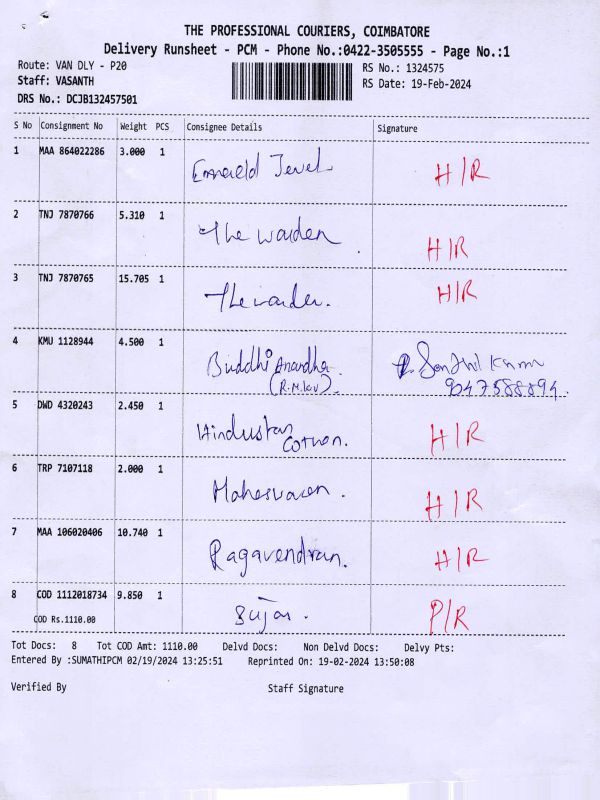 THE PROFESSIONAL COURIERS, COIMBATORE
Delivery Runsheet - PCM - Phone No.:0422-3505555 - Page No.:1
Route: VAN DLY - P20 RS No.: 1324575
Staff: VASANTH RS Date: 19-Feb-2024
DRS No.: DCJB132457501
S No Consignment No Weight PCS Consignee Details Signature
1 MAA 864022286 3.000 1 Emaraeld Jewel. H/R
2 TNJ 7870766 5.310 1 The Warden H/R
3 TNJ 7870765 15.705 1 The warden. H/R
4 KMU 1128944 4.500 1 Buddhi Anandha. Senthil Kumar
(R.M.Kov). 9047588894
5 DWD 4320243 2.450 1 Hindustan H/R
Cotton.
6 TRP 7107118 2.000 1 Maheswaran. H/R
7 MAA 106020406 10.740 1 Ragavendran. H/R
8 COD 1112018734 9.850 1 P/R
COD Rs.1110.00
Tot Docs: 8 Tot COD Amt: 1110.00 Delvd Docs: Non Delvd Docs: Delvy Pts:
Entered By :SUMATHIPCM 02/19/2024 13:25:51 Reprinted On: 19-02-2024 13:50:08
Verified By Staff Signature